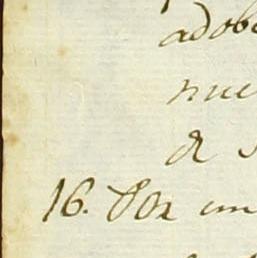 adob
nue
de
16. Por un